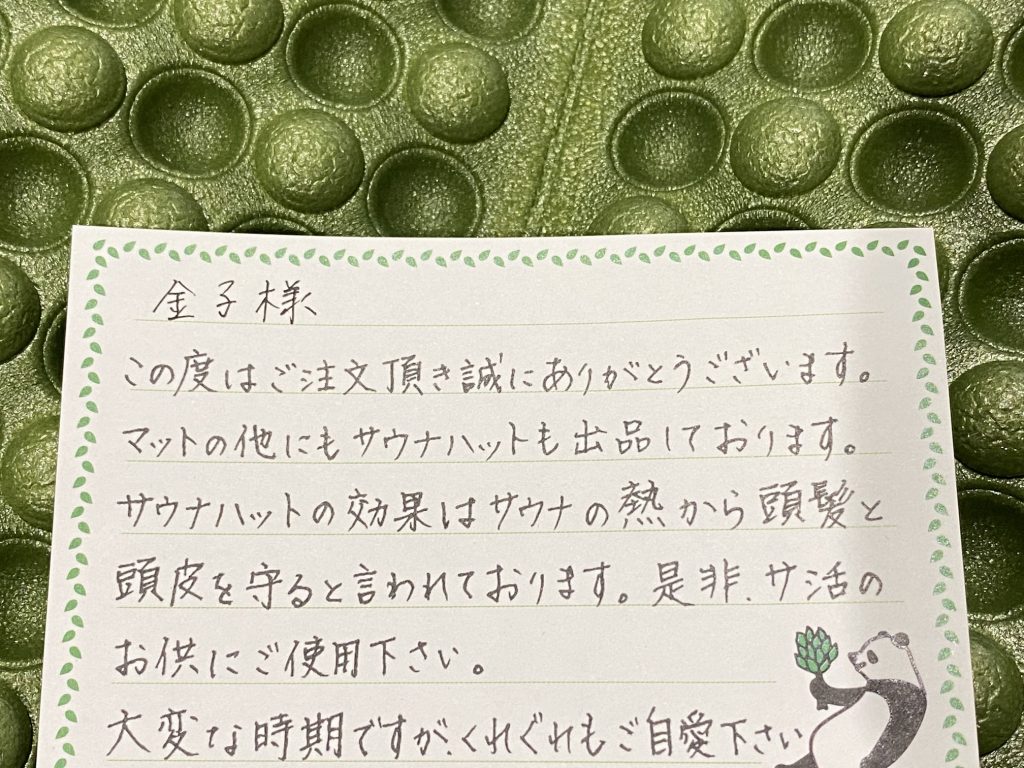 金子様
この度はご注文頂き誠にありがとうございます。
マットの他にもサウナハットも出品しております。
サウナハットの効果はサウナの熱から頭髪と
頭皮を守ると言われております。是非、サ活の
お供にご使用下さい。
大変な時期ですが、くれぐれもご自愛下さい